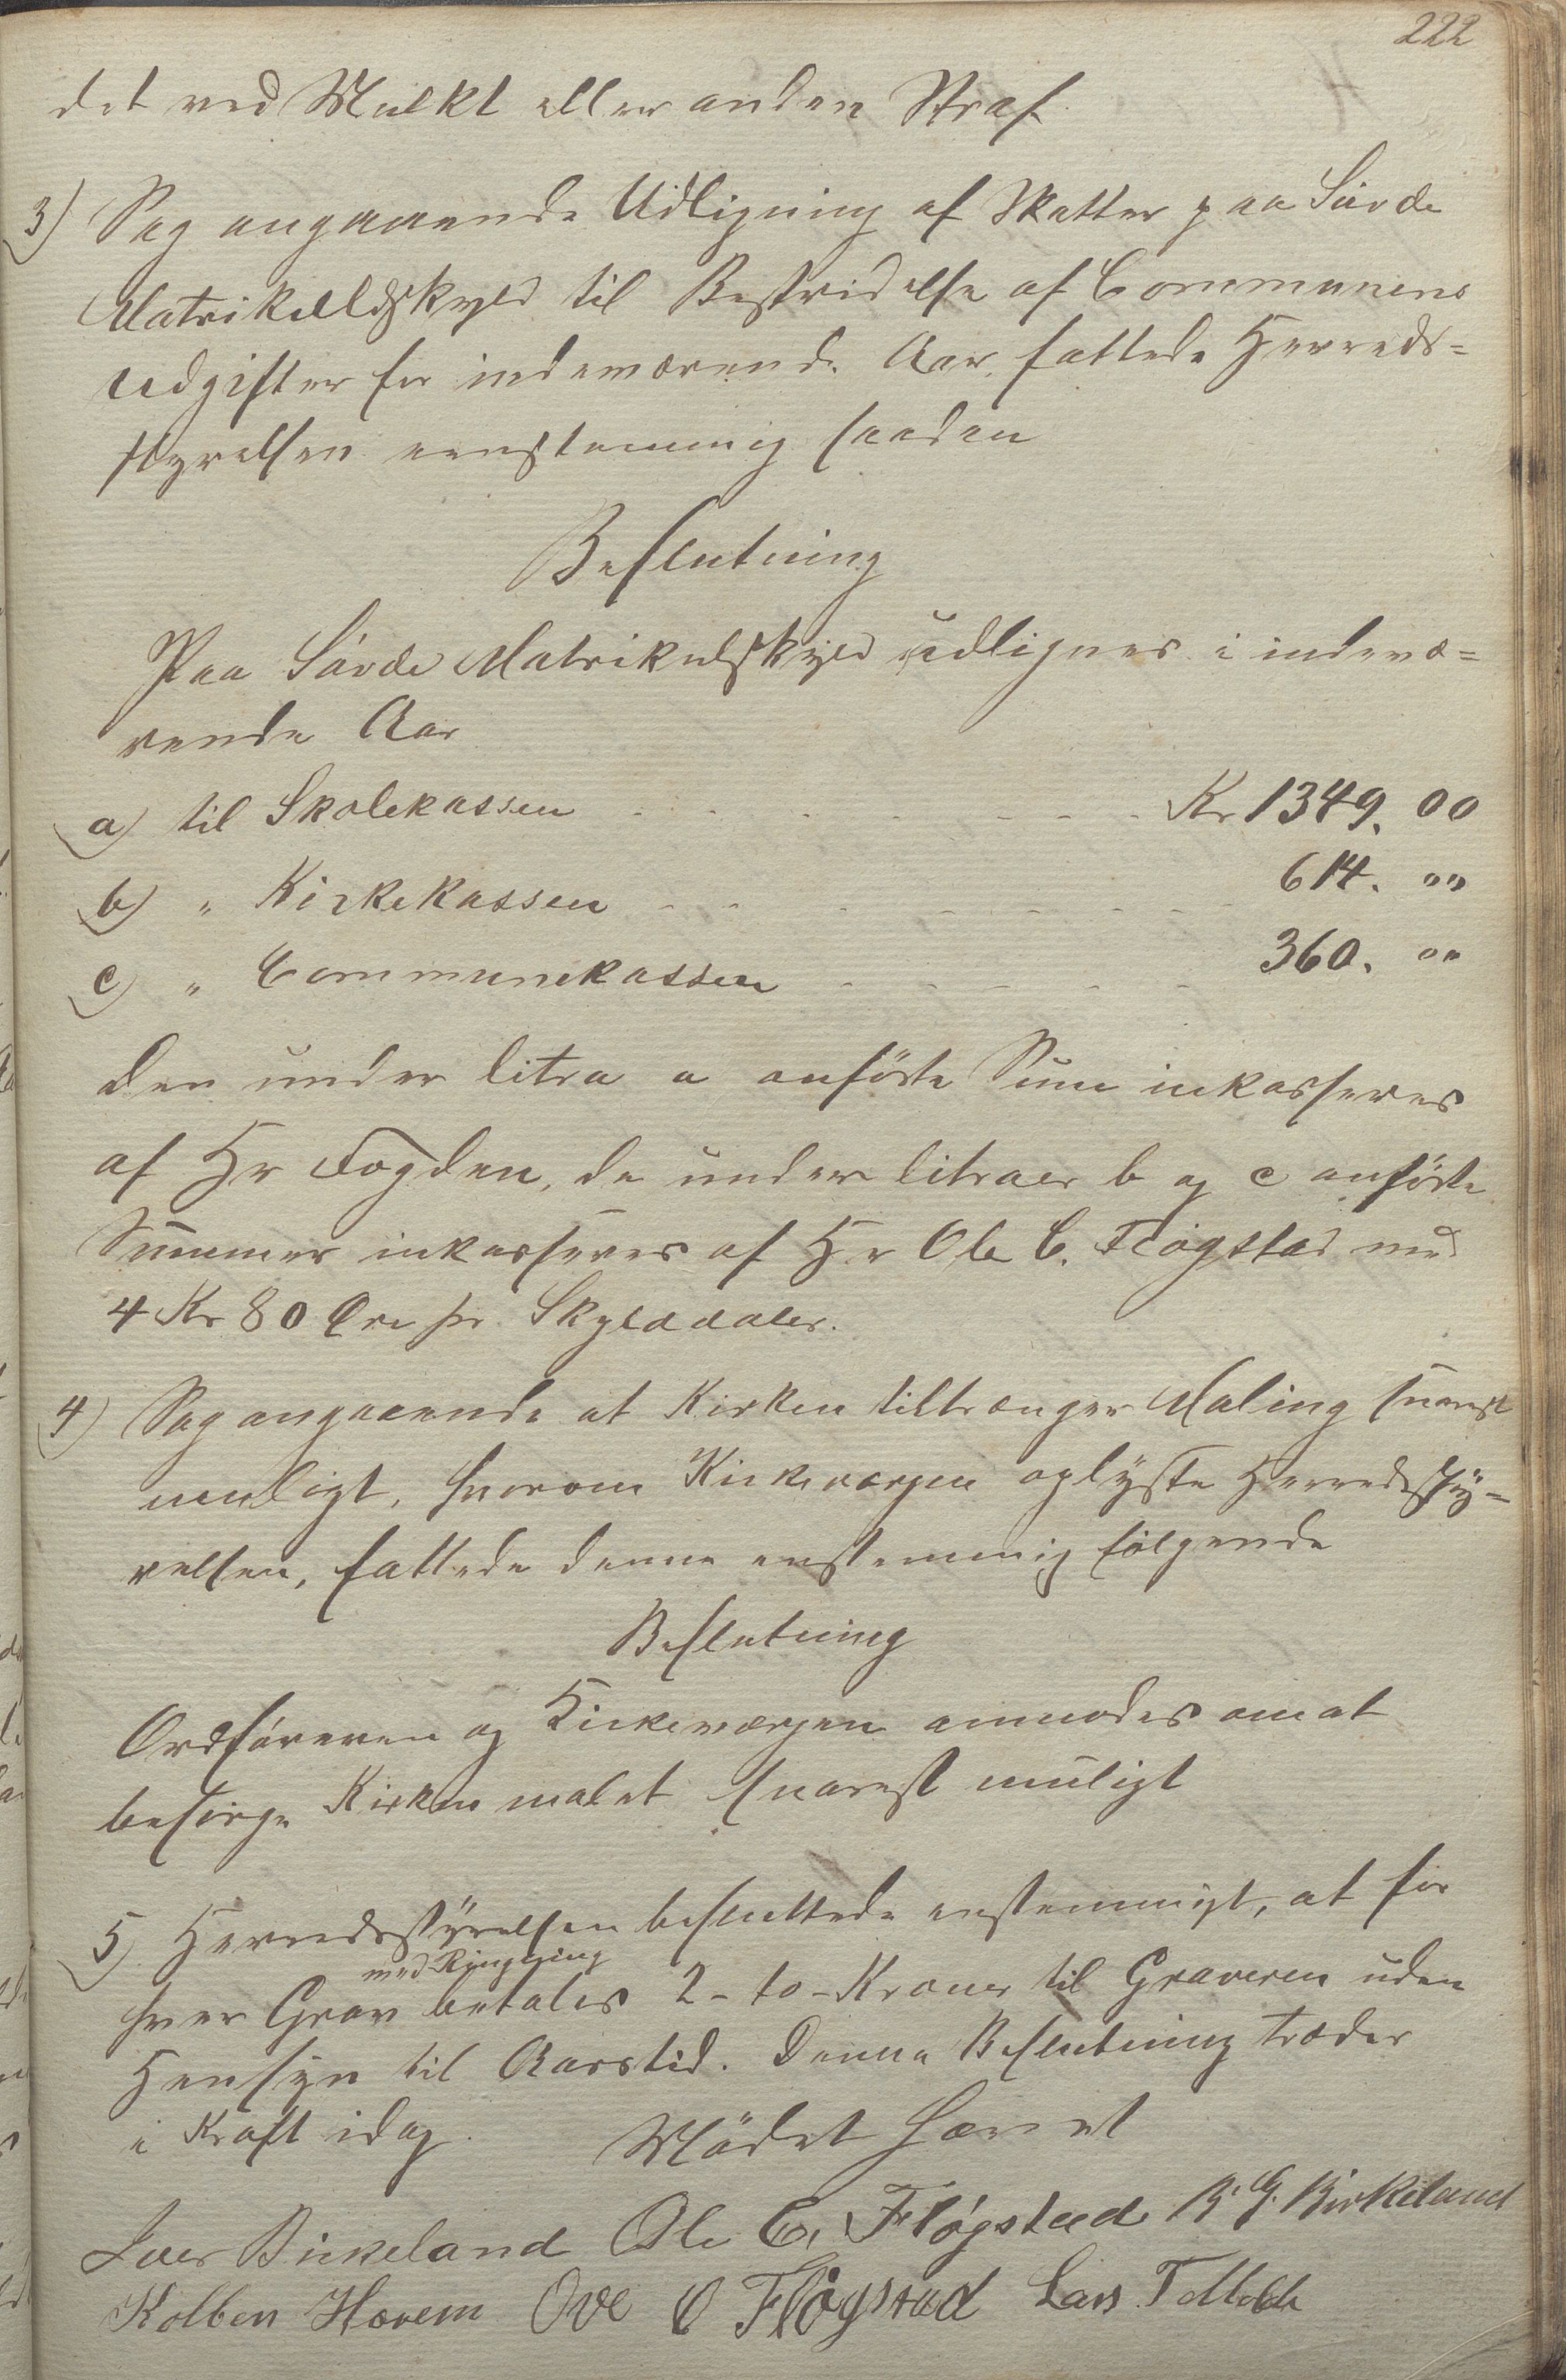 222
det ved Mulkt eller anden Straf.
3) Sag angaaende Udligning af Skatter paa Søvde
Matrikulskyld til Bestridelse af Communens
Udgifter for indeværende Aar, fattede Herreds-
styrelsen eenstemmig saaden
Beslutning
Paa Søvde Matrikulskyld udlignes i indevæ-
rende Aar
a) til Skolekassen - - - - - - Kr 1349. 00
b) " Kirkekassen - - - - - - 614. ""
c) " Communekassen - - - - - 360. ""
Den under litra a anførte Sum inkasseres
af Hr Fogden, de under litraer b og c anførte
Summer inkasseres af Hr Ole C. Fløgstad med
4 Kr 80 Øre pr. Skylddaler.
4) Sag angaaende at Kirken tiltrænger Maling snarest
muligt, hvorom Kirkeværgen oplyste Herredssty-
relsen, fattede denne enstemmig følgende
Beslutning
Ordføreren og Kirkeværgen anmodes om at
besørge Kirken malet snarest muligt
5) Herredsstyrelsen besluttede enstemmigt, at for
med Ringning
hver Grav betales 2 - to - Kroner til Graveren uden
Hensyn til Aarstid. Denne Beslutning træder
i Kraft idag. Mødet hævet
Iver Birkeland Ole C. Fløgstad B. G. Birkeland
Kolben Hovem Ove O Fløgstad Lars